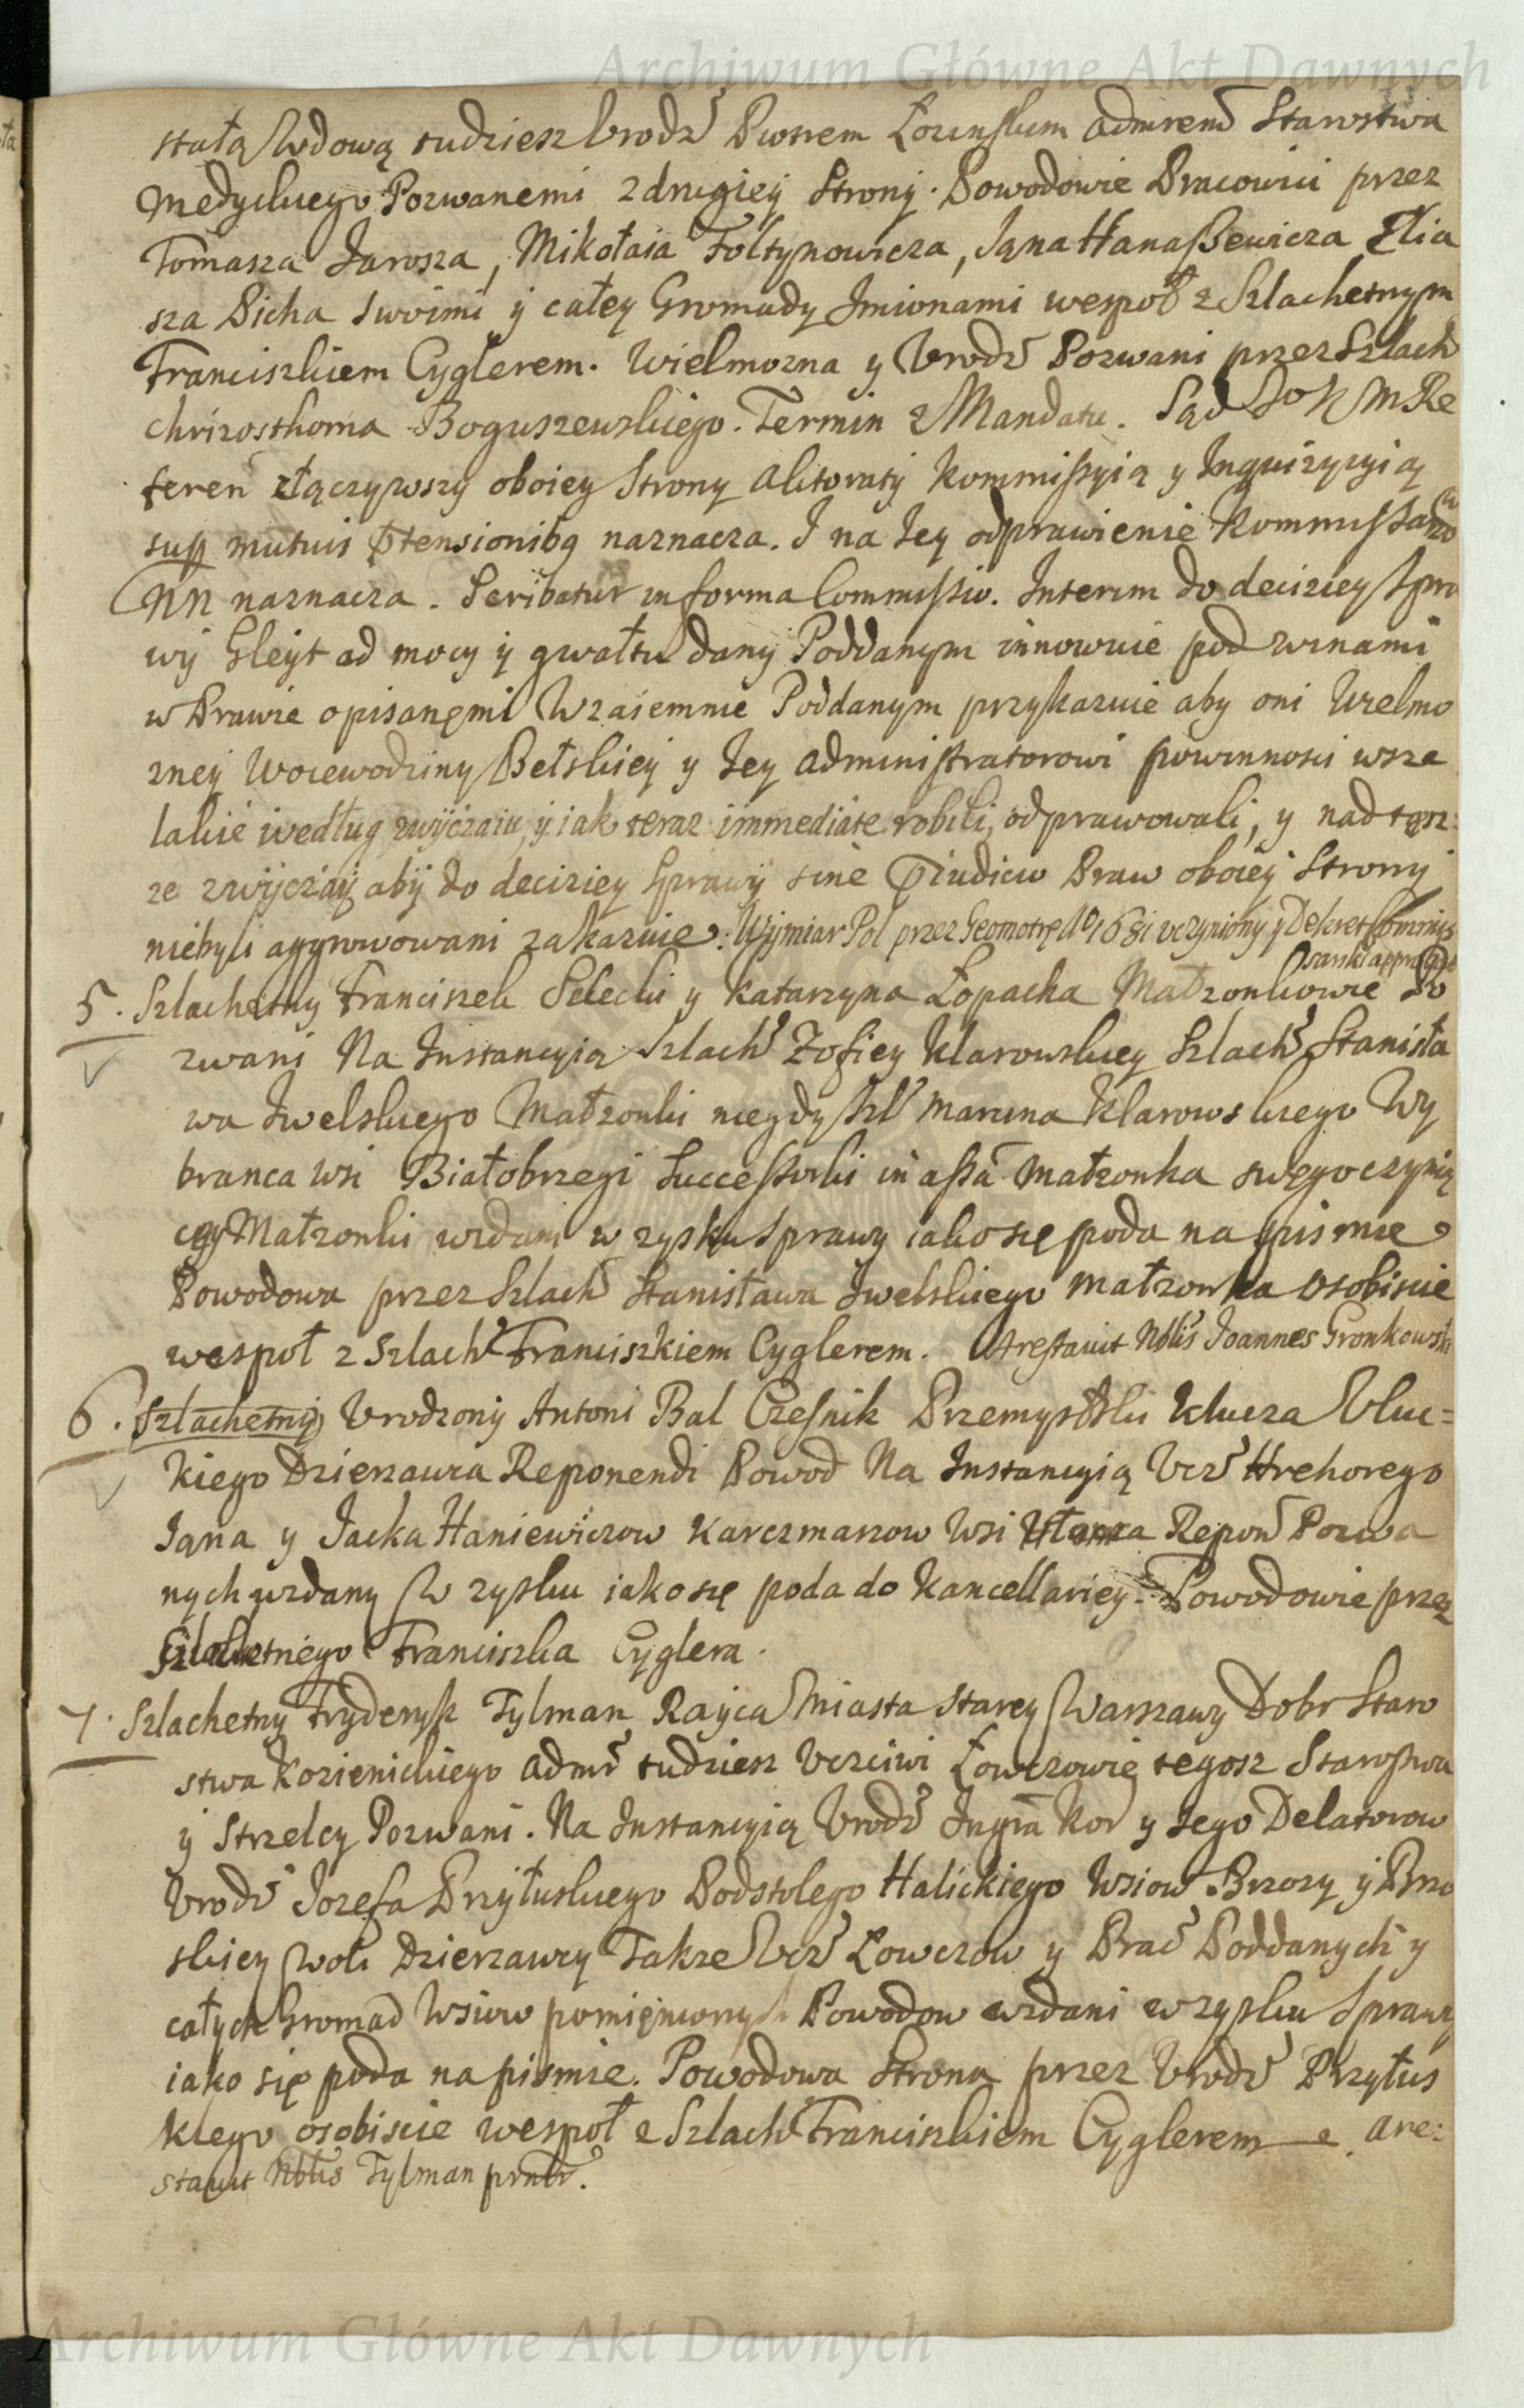 Archiwum Główne Akt Dawnych
stałą Wdową tudziesz Urodz Piotrem Łozinskim admrem Starostwa
Medyckiego Pozwanemi z drugiey Strony. Powodowie Pracowici przez
Tomasza Jarosza, Mikołaia Foltynowicza, Jana Hanaszewicza Elia
sza Dicha swoimi y całey Gromady Imionami wespoł z Szlachetnym
Franciszkiem Cyglerem. Wielmozna y Urodz Pozwani przez Szlach
Chrizosthoma Boguszewskiego. Termin z Mandatu. Sąd JoKMRe
feren złączywszy oboiey Strony aktoraty Kommissyią y Inquizycyią
sup mutuis ptensionibq naznacza. I na Jey odprawienie Kommissarzo
w
NN naznacza. Scribatur in forma Commissio. Interim do deciziey Spra
wy Gleyt ad mocy y gwałtu dany Poddanym innowuie pod winami
w Prawie opisanemi Wzaiemnie Poddanym przykazuie aby oni Wielmo
zney Woiewodziny Bełskiey y Jey administratorowi powinnosci wsze
lakie według zwyczaiu, y iak teraz immediate robili, odprawowali, y nad tęsz
ze zwyczay aby do deciziey Sprawy sine piudicio Praw oboiey Strony
niebyli aggrawowani zakazuie. Wymiar Pol przez Geometrę Ao 1681 uczyniony y Dekret Commis
sarski approb
5. Szlachetny Franciszek Selecki y Katarzyna Łopacka Małzonkowie Po
zwani Na Instancyią Szlach Zofiey Klarowskiey Szlach Stanisła
wa Iwelskiego Małzonki niegdy Szl Marcina Klarowskiego Wy
branca wsi Białobrzegi Successorki in assa Małzonka swego czynią
cey Małzonki wzdani w zysku sprawy iako się poda na pismie
Powodowa przez Szlach Stanisława Iwelskiego małzonka osobiscie
wespoł z Szlach Franciszkiem Cyglerem. Arestavit Nblis Joannes Gronkowski
6. Szlachetny Urodzony Antoni Bal Czesnik Przemyslki Klucza Uluc=
kiego Dzierzawca Reponendi Powod Na Instancyią Ucz Hrehorego
Jana y Jacka Haniewiczow Karczmarzow Wsi Repon Pozwa
nych wzdany W zysku iako się poda do Kancellariey. Powodowie przez
Szlachetnego Franciszka Cyglera.
7. Szlachetny Fryderyk Tylman Rayca Miasta Starey Warszawy Dobr Staro
stwa Kozienickiego admr tudziesz Uczciwi Łowczowie tegosz Starostwa
y Strzelcy Pozwani. Na Instancyią Urodz Ingra Kor y Jego Delatorow
Urodz Jozefa Przyłuskiego Podstolego Halickiego Wsiow Brzozy y Brzo
skiey Woli Dzierzawcy Takze Ucz Łowczow y Prac Poddanych y
całych Gromad Wsiow pomięnionych Powodow wzdani w zysku Sprawy
iako się poda na pismie. Powodowa Strona przez Urodz Przyłus
kiego osobiscie wespoł z Szlach Franciszkiem Cyglerem. are:
stavit Nblis Tylman prntr.
Archiwum Główne Akt Dawnych